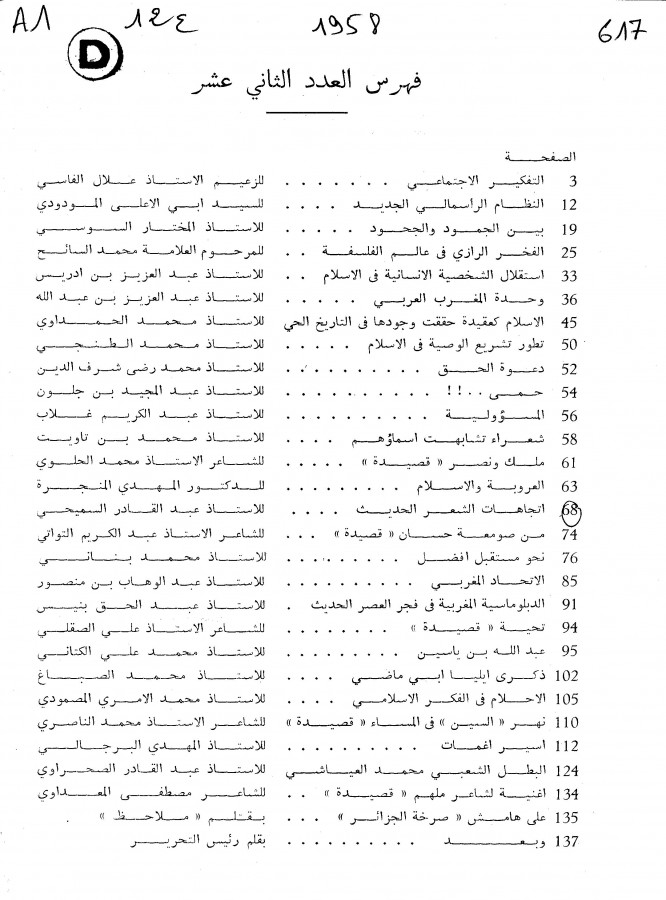 A1 12ع 1958 617
D
فهرس العدد الثاني عشر
الصفحة
3 التفكير الاجتماعي . . . . . . . للزعيم الاستاذ علال الفاسي
12 النظام الرأسمالي الجديد . . . . للسيد ابي الاعلى المودودي
19 بين الجمود والجحود . . . . . للاستاذ المختار السوسي
25 الفخر الرازي فى عالم الفلسفة . . للمرحوم العلامة محمد السائح
33 استقلال الشخصية الانسانية فى الاسلام للاستاذ عبد العزيز بن ادريس
36 وحدة المغرب العربي . . . . . للاستاذ عبد العزيز بن عبد الله
45 الاسلام كعقيدة حققت وجودها فى التاريخ الحي للاستاذ محمد الحمداوي
50 تطور تشريع الوصية فى الاسلام . . . . . للاستاذ محمد الطنجي
52 دعوة الحق . . . . . . . . . للاستاذ محمد رضى شرف الدين
54 حمى ..!! . . . . . . . . . . للاستاذ عبد المجيد بن جلون
56 المسؤولية . . . . . . . . . . للاستاذ عبد الكريم غلاب
58 شعراء تشابهت اسماؤهم . . . . للاستاذ محمد بن تاويت
61 ملك ونصر « قصيدة » . . . . . للشاعر الاستاذ محمد الحلوي
63 العروبة والاسلام . . . . . . . للدكتور المهدي المنجرة
68 اتجاهات الشعر الحديث . . . للاستاذ عبد القادر السميحي
74 من صومعة حسان « قصيدة » . . . للشاعر الاستاذ عبد الكريم التواتي
76 نحو مستقبل افضل . . . . . . . للاستاذ محمد بناني
85 الاتحاد المغربي . . . . . . . . . للاستاذ عبد الوهاب بن منصور
91 الدبلوماسية المغربية فى فجر العصر الحديث . للاستاذ عبد الحق بنيس
94 تحية « قصيدة » . . . . . . . . للشاعر الاستاذ علي الصقلي
95 عبد الله بن ياسين . . . . . . . . للاستاذ محمد علي الكتاني
102 ذكرى ايليا ابي ماضي . . . . للاستاذ محمد الصباغ
105 الاحلام فى الفكر الاسلامي . . . . للاستاذ محمد الامري المصمودي
110 نهر « السين » فى المساء « قصيدة » للشاعر الاستاذ محمد الناصري
112 اسير اغمات . . . . . . . . . . للاستاذ المهدي البرجالي
124 البطل الشعبي محمد العياشي للاستاذ عبد القادر الصحراوي
134 اغنية لشاعر ملهم « قصيدة » . . للشاعر مصطفى المعداوي
135 على هامش « صرخة الجزائر » . . . بقلم « ملاحظ »
137 وبعد . . . . . . . . . . بقلم رئيس التحرير